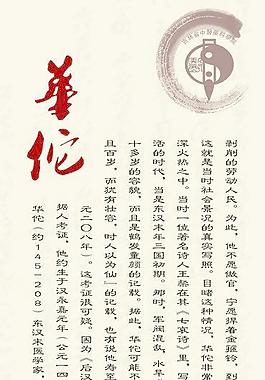 華佗
华佗（约145-208）东汉末医学家，
据人考证，他约生于汉永嘉元年（公元一四
元二〇八年）。这考证很可疑。因为《后汉
且百岁，而犹有壮容，时人以为仙”的记载，也有说他寿至
十多岁的容貌，而且是鹤发童颜的记载。据此，华佗可能不
活的时代，当是东汉末年三国初期。那时，军阀混乱，水旱
深火热之中。当时一位著名诗人王粲在其《七哀诗》里，写
这就是当时社会景况的真实写照。目睹这种情况，华佗非常
剥削的劳动人民。为此，他不愿做官，宁愿捍着金箍铃，到